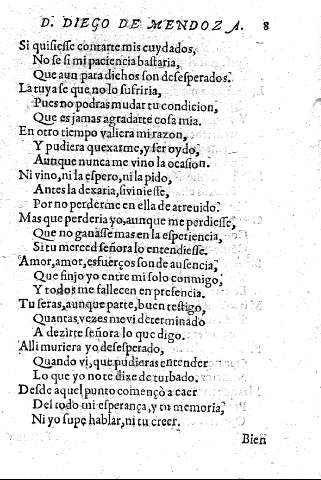 D. DIEGO DE MENDOZA. 8
Si quisiesse contarte mis cuydados,
No se si mi paciencia bastaria,
Que aun para dichos son desesperados.
La tuya se que no lo sufriria,
Pues no podras mudar tu condicion,
Que es jamas agradarte cosa mia.
En otro tiempo valiera mi razon,
Y pudiera quexarme, y ser oydo,
Aunque nunca me vino la ocasion.
Ni vino, ni la espero, ni la pido,
Antes la dexaria, si viniesse,
Por no perderme en ella de atreuido.
Mas que perderia yo, aunque me perdiesse,
Que no ganasse mas en la esperiencia,
Si tu merced señora lo entendiesse.
Amor, amor, esfuerços son de ausencia,
Que finjo yo entre mi solo conmigo,
Y todos me fallecen en presencia.
Tu seras, aunque parte, buen testigo,
Quantas vezes me vi determinado
A dezirte señora lo que digo.
Alli muriera yo desesperado,
Quando vi, que pudieras entender
Lo que yo no te dixe de turbado.
Desde aquel punto començò a caer
Del todo mi esperança, y tu memoria,
Ni yo supe hablar, ni tu creer.
Bien